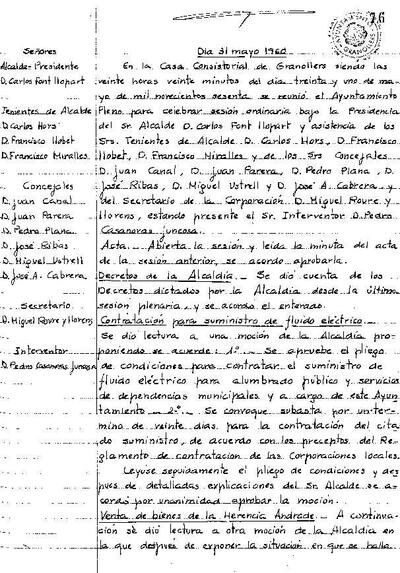 76
Señores
Alcalde-Presidente
D. Carlos Font Llopart
Tenientes de Alcalde
D. Carlos Hors
D. Francisco Llobet
D. Francisco Miralles
Concejales
D. Juan Canal
D. Juan Parera
D. Pedro Plana
D. José Ribas
D. Miguel Ustrell
D. José A. Cabrera
Secretario
D. Miguel Roure y Llorens
Interventor
D. Pedro Casanovas Juncosa
Dia 31 mayo 1960
En la Casa Consistorial de Granollers siendo las
veinte horas veinte minutos del dia treinta y uno de ma-
yo de mil novecientos sesenta se reunió el Ayuntamiento
Pleno para celebrar sesión ordinaria bajo la Presidencia
del Sr. Alcalde D. Carlos Font Llopart y asistencia de los
Srs. Tenientes de Alcalde D. Carlos Hors, D. Francisco
Llobet, D. Francisco Miralles y de los Srs Concejales
D. Juan Canal, D. Juan Parera, D. Pedro Plana, D.
José Ribas, D. Miguel Ustrell y D. José A. Cabrera y
del Secretario de la Corporación D. Miguel Roure y
Llorens, estando presente el Sr. Interventor D. Pedro
Casanovas Juncosa.
Acta.- Abierta la sesión y leida la minuta del acta
de la sesión anterior, se acordo aprobarla.
Decretos de la Alcaldía.- Se dió cuenta de los
Decretos dictados por la Alcaldia desde la última
sesión plenaria, y se acordo el enterado.
Contratación para suministro de fluido eléctrico.-
Se dió lectura a una moción de la Alcaldia pro-
poniendo se acuerde: 1º.- Se apruebe el pliego
de condiciones para contratar el suministro de
fluido eléctrico para alumbrado público y servicios
de dependencias municipales y a cargo de este Ayun-
tamiento.- 2º.- Se convoque subasta por un ter-
mino de veinte dias para la contratación del cita-
do suministro, de acuerdo con los preceptos del Re-
glamento de contratacion de las Corporaciones locales.
Leyose seguidamente el pliego de condiciones y des
pues de detalladas explicaciones del Sr. Alcalde se a-
cordó por unanimidad aprobar la moción.
Venta de bienes de la Herencia Andrade.- A continua-
ción se dió lectura a otra moción de la Alcaldia en
la que despues de exponer la situación en que se halla